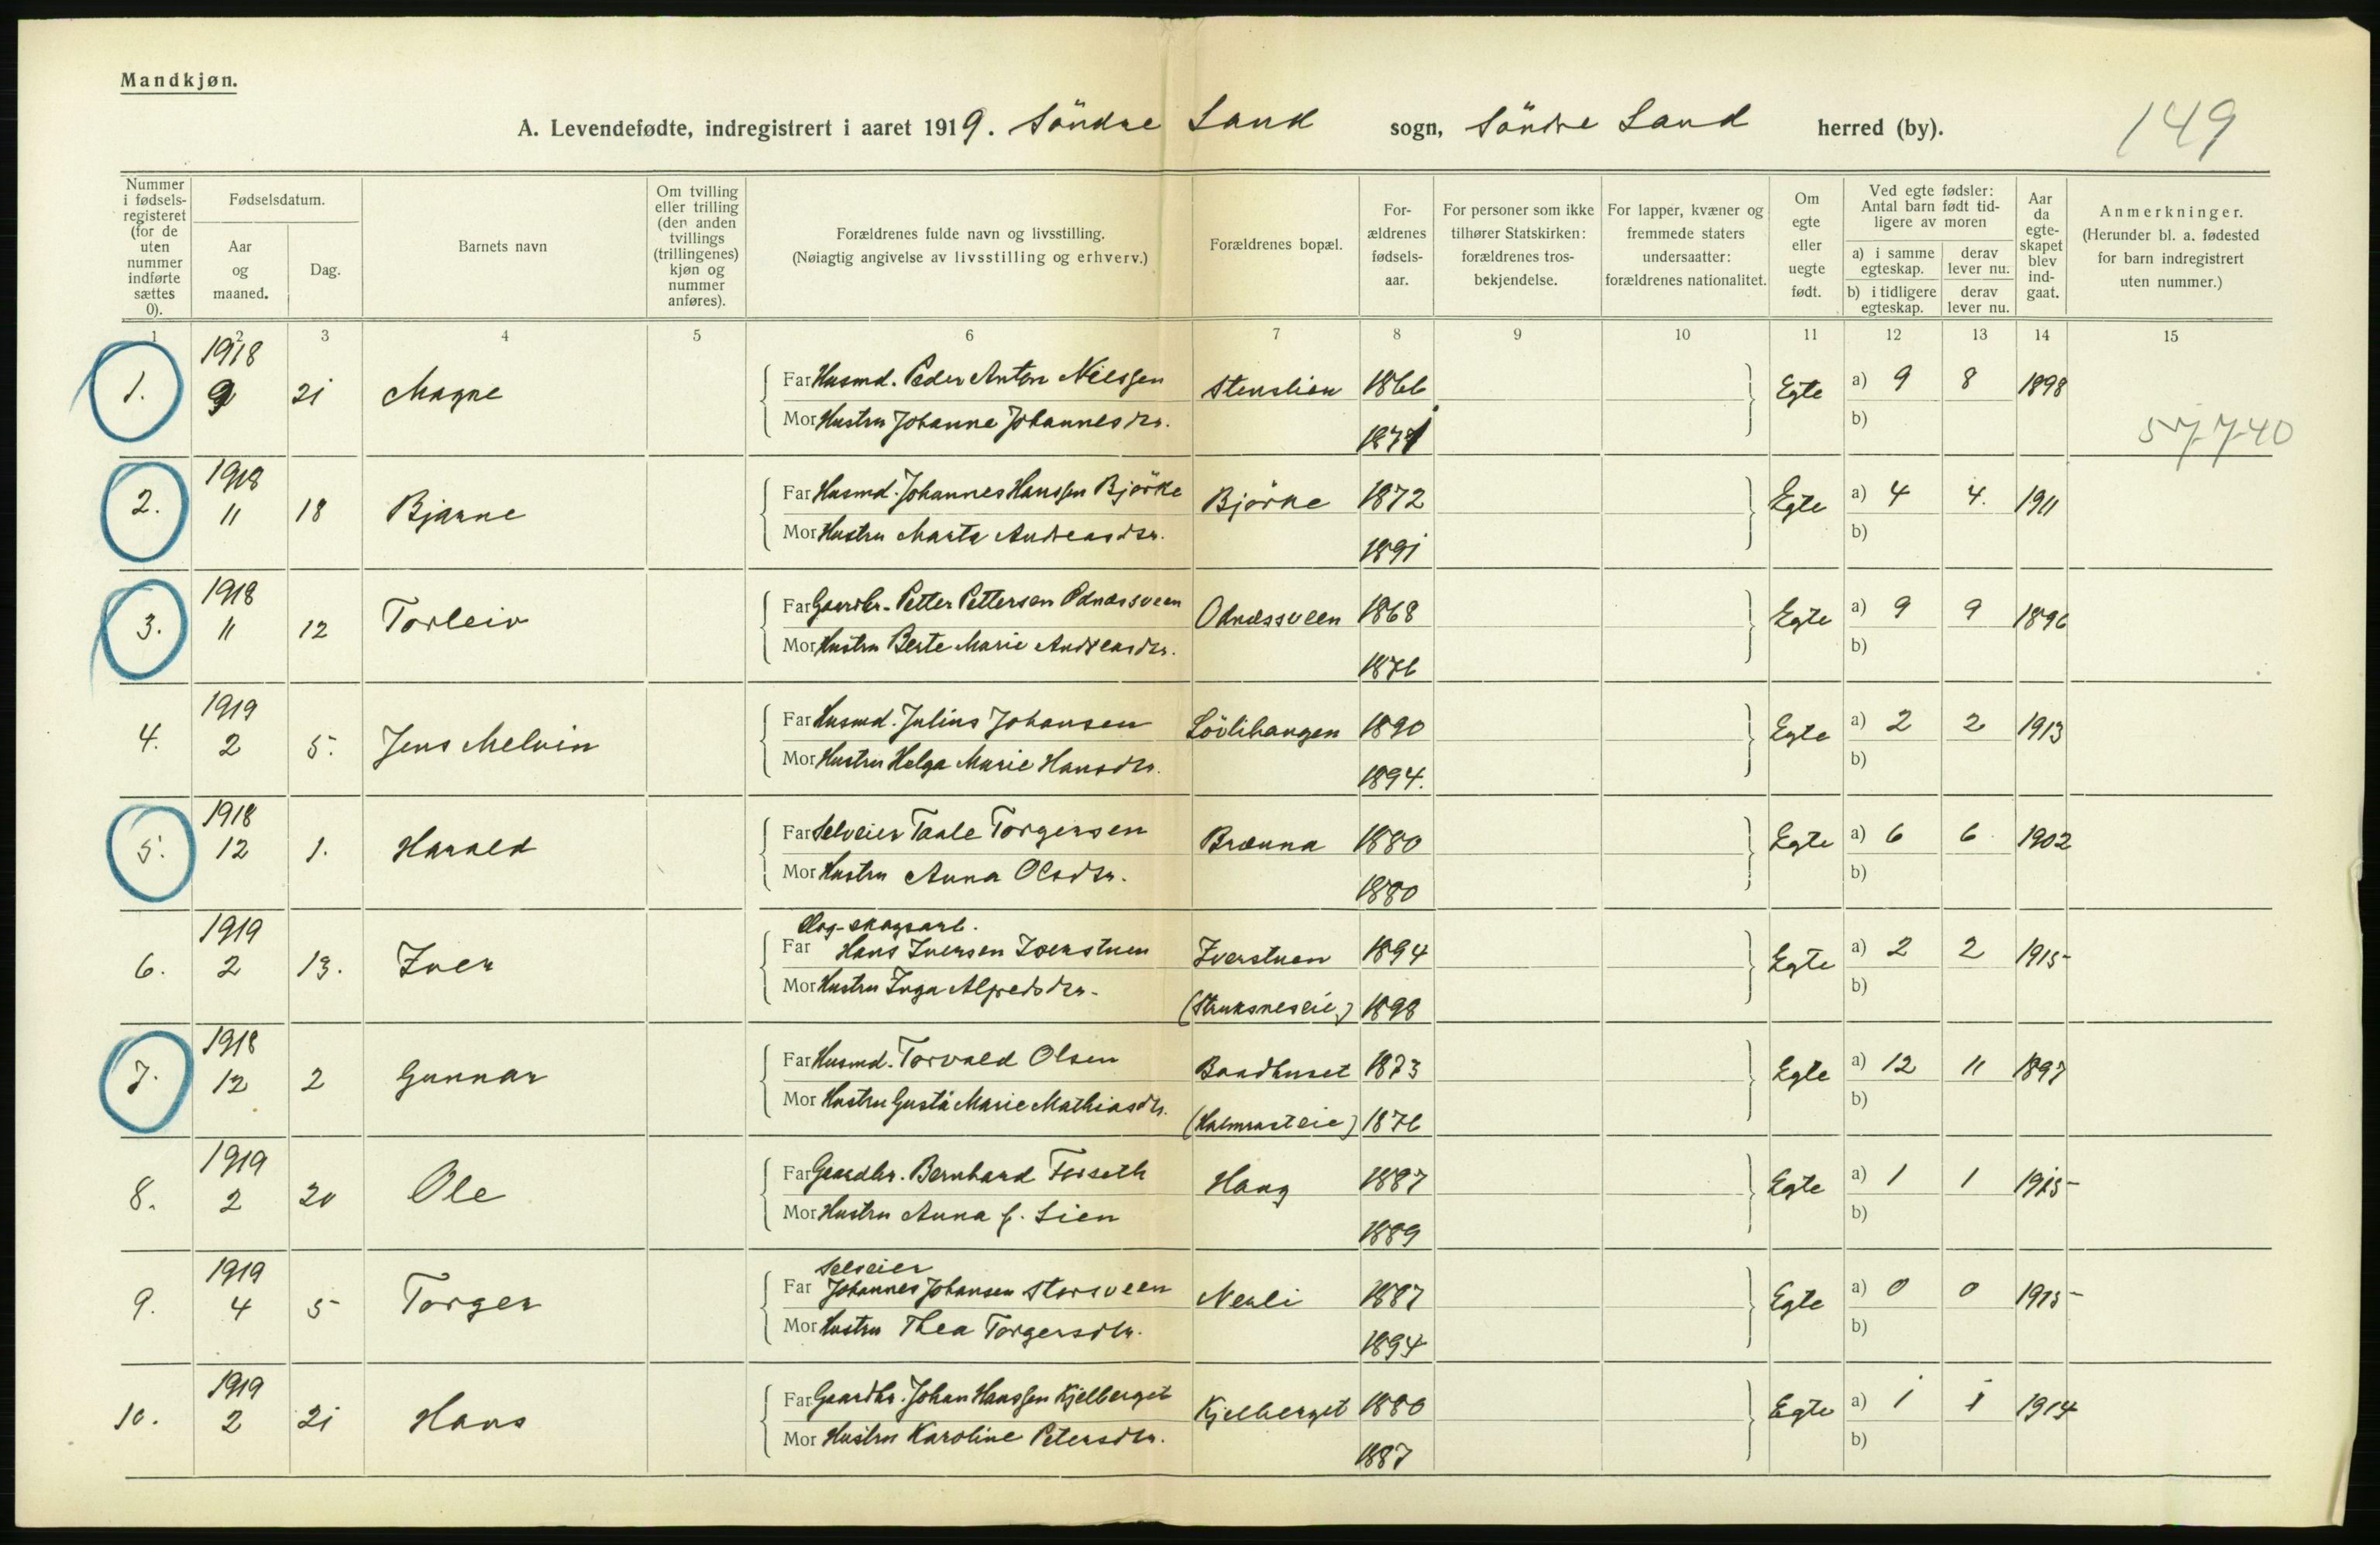 Mandkjøn.
A. Levendefødte, indregistrert i aaret 1919. Söndre Land sogn, Söndre Land herred (by).
149
Nummer i fødsels-registeret (for de uten nummer indførte sættes 0).
Fødselsdatum.
Aar og maaned.
Dag.
Barnets navn
Om tvilling eller trilling (den anden tvillings (trillingenes) kjøn og nummer anføres).
Forældrenes fulde navn og livsstilling.
(Nøiagtig angivelse av livsstilling og erhverv.)
Forældrenes bopæl.
For-ældrenes fødsels-aar.
For personer som ikke tilhører Statskirken: forældrenes tros-bekjendelse.
For lapper, kvæner og fremmede staters undersaatter: forældrenes nationalitet.
Om egte eller uegte født.
Ved egte fødsler: Antal barn født tid-ligere av moren
a) i samme egteskap.
derav lever nu.
b) i tidligere egteskap.
derav lever nu.
Aar da egte-skapet blev ind-gaat.
Anmerkninger.
(Herunder bl. a. fødested for barn indregistrert uten nummer.)
1 2 3 4 5 6 7 8 9 10 11 12 13 14 15
1918
1. 9 21 Magne Far Husmd. Peder Anton Nilssen Stenslien 1866 Egte a) 9 8 1898
Mor Hustru Johanne Johannesdtr. 1871 b)
57740
1918
2. 11 18 Bjarne Far Husmd. Johannes Hanssen Björke Björke 1872 Egte a) 4 4. 1911
Mor Hustru Marta Andreasdtr. 1891 b)
1918
3. 11 12 Torleiv Far Gaardbr. Petter Pettersen Odnæssveen Odnæssveen 1868 Egte a) 9 9 1896
Mor Hustru Berte Marie Andreasdtr. 1876 b)
1919
4. 2 5. Jens Melvin Far Husmd. Julius Johansen Lövlihaugen 1890 Egte a) 2 2 1913
Mor Hustru Helga Marie Hansdtr. 1894. b)
1918
5. 12 1. Harald Far Selveier Taale Torgersen Brænna 1880 Egte a) 6 6 1902
Mor Hustru Anna Olsdtr. 1880 b)
1919 Dag-skogsarb.
6. 2 13. Iver Far Hans Iversen Iverstuen Iverstuen 1894 Egte a) 2 2 1915
Mor Hustru Inga Alfredsdtr. (Struksneseie) 1898 b)
1918
7. 12 2 Gunnar Far Husmd. Torvald Olsen Baadhuset 1873 Egte a) 12 11 1897
Mor Hustru Gusta Marie Mathiasdtr. (Halmrasteie) 1876 b)
1919
8. 2 20 Ole Far Gaardbr. Bernhard Forseth Haug 1887 Egte a) 1 1 1915
Mor Hustru Anna f. Lien 1889 b)
1919 Selveier
9. 4 5 Torger Far Johannes Johansen Storsveen Nerli 1887 Egte a) 0 0 1915
Mor Hustru Thea Torgersdtr. 1894 b)
1919
10. 2 21 Hans Far Gaardbr. Johan Hanssen Kjelberget Kjelberget 1880 Egte a) 1 1 1914
Mor Hustru Karoline Petersdtr. 1887 b)